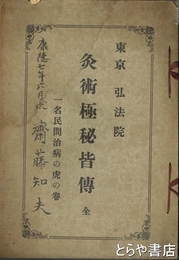 東京 弘法院
灸術極秘皆傳 全
一名民間治病の虎の巻
康德七年六月求
齋藤知夫
とらや書店